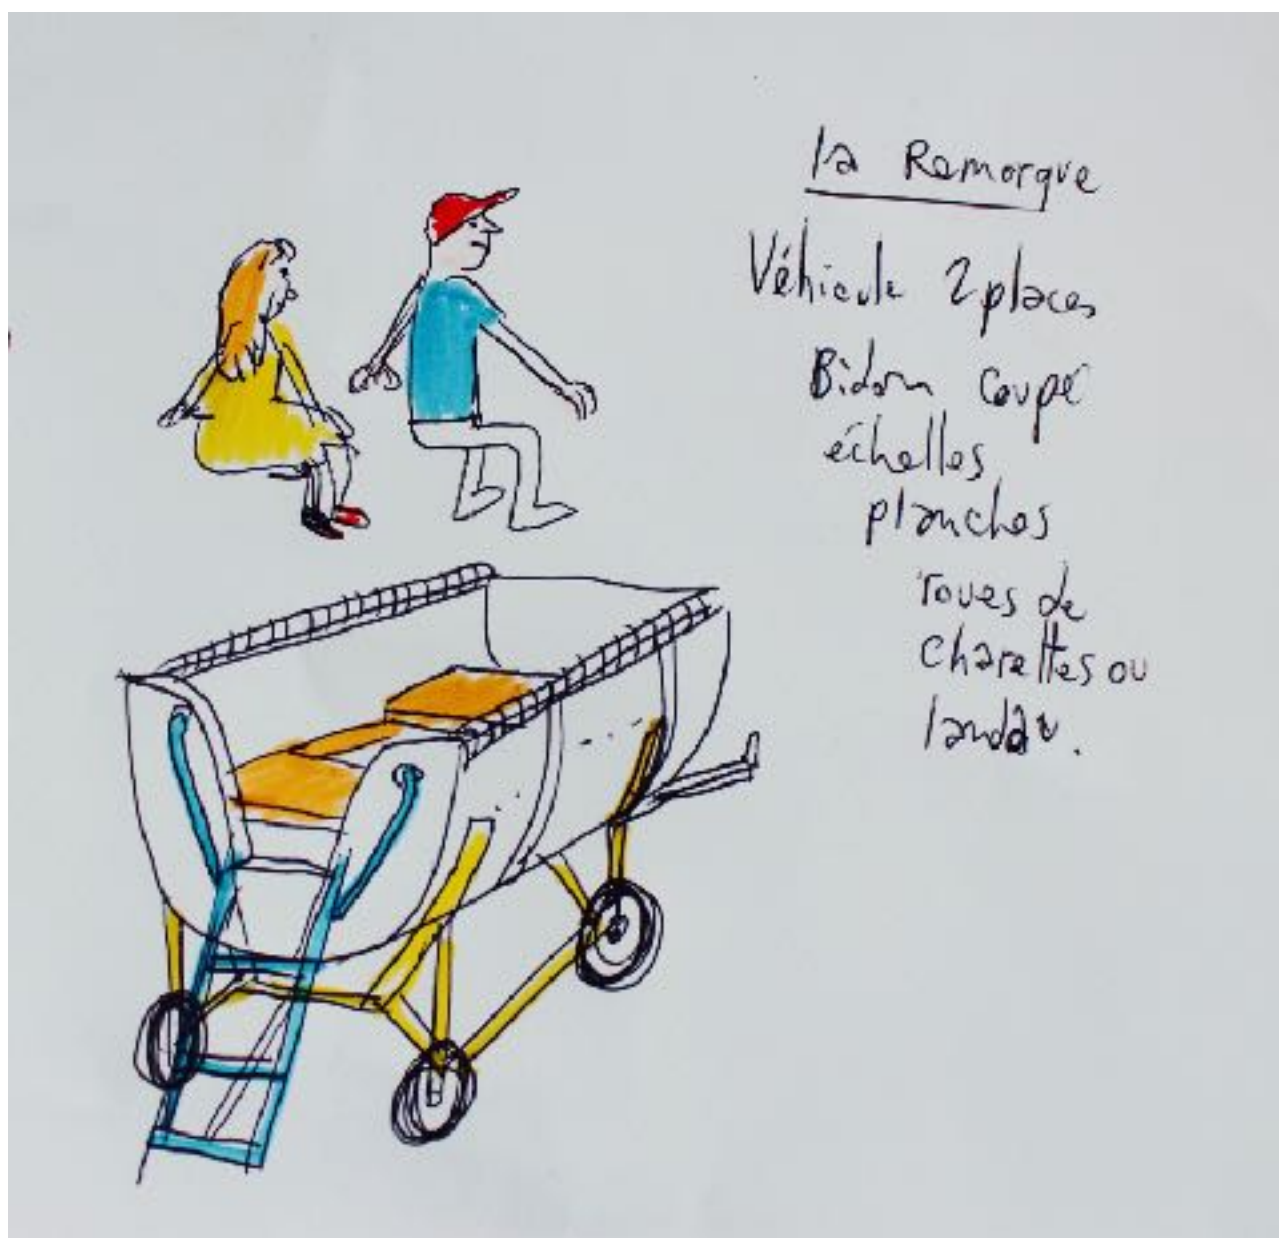 la Remorque
Véhicule 2 places
Bidon coupé
échelles
planches
roues de
charettes ou
landau.